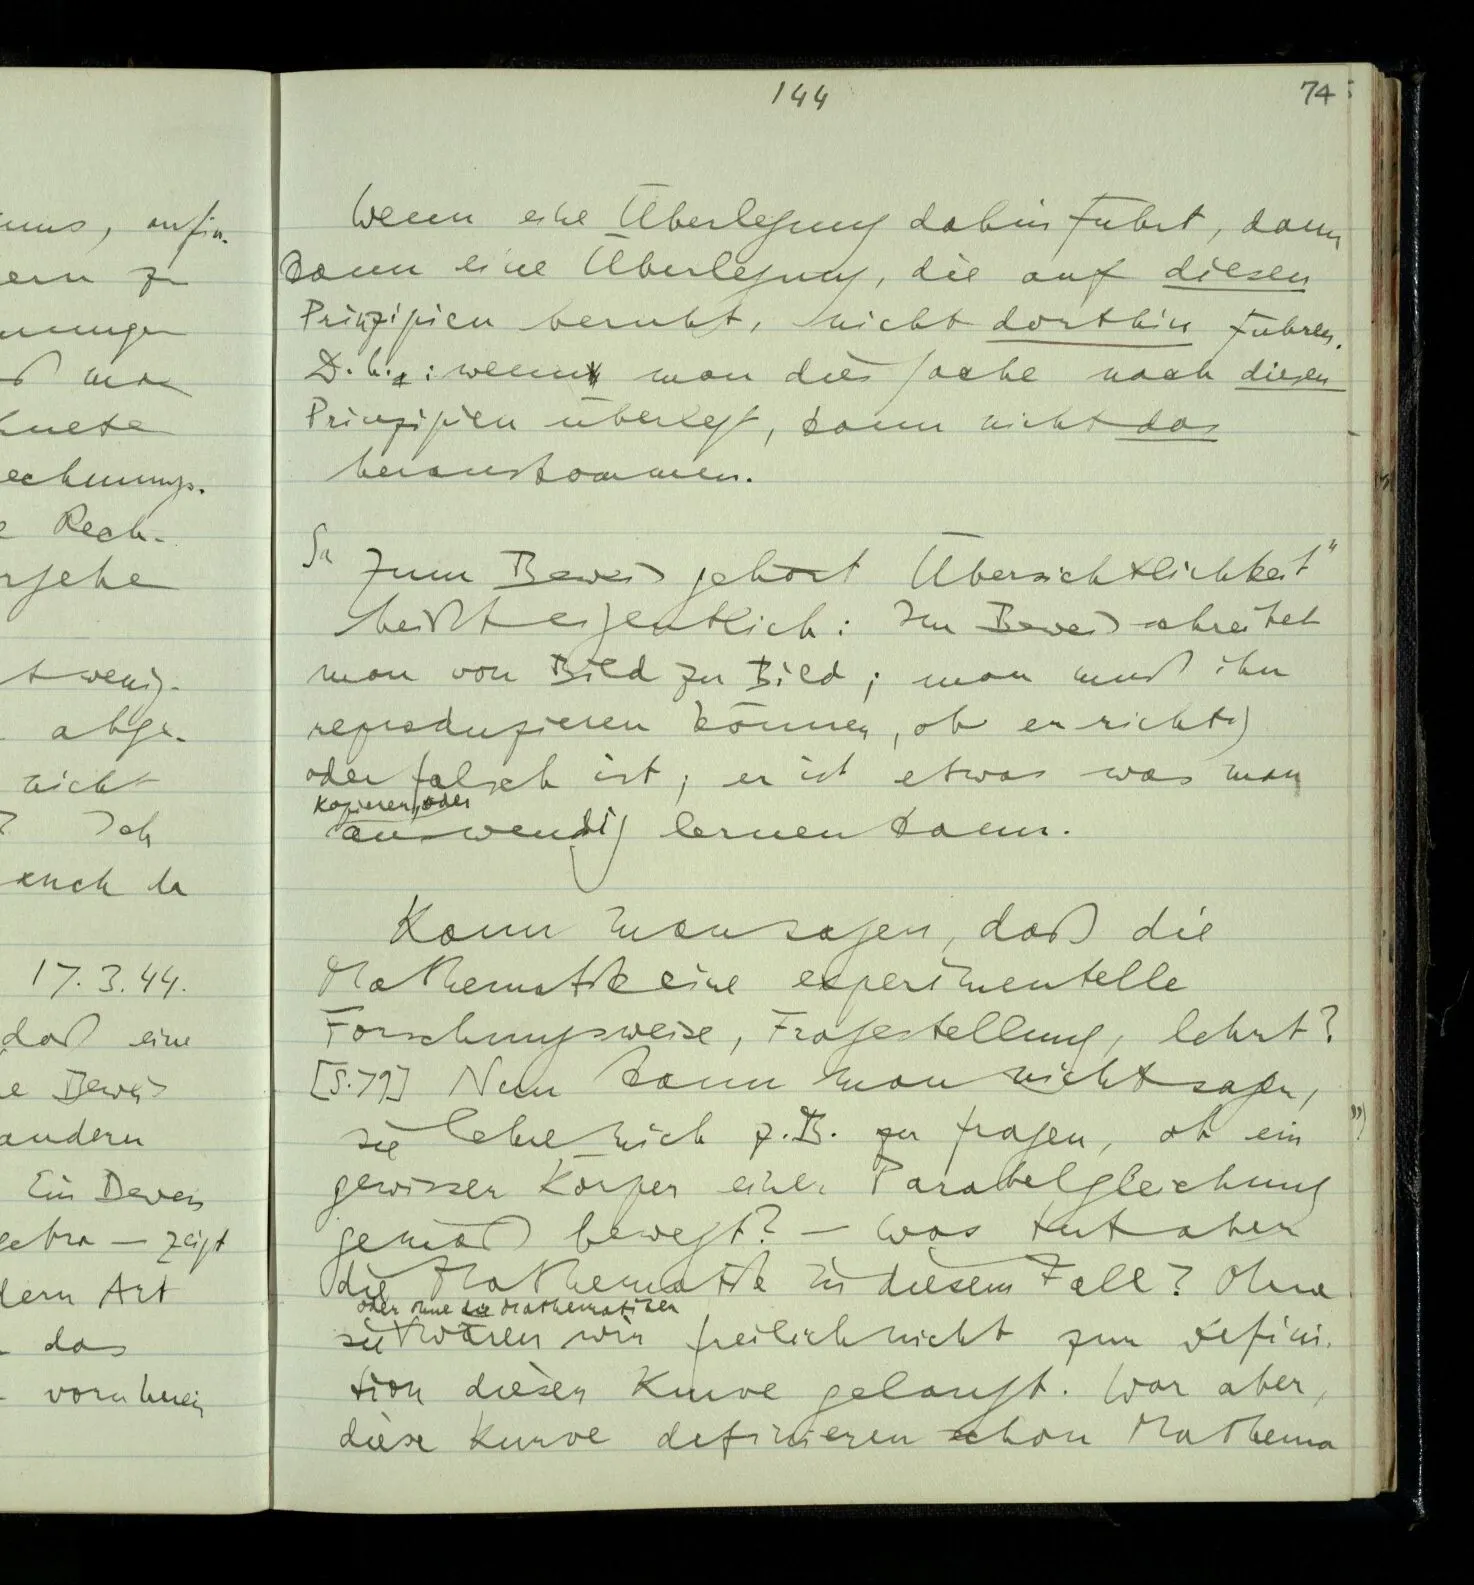 uns, anfin-
ern zu
nungen
ß man
hnete
echnungs-
e Rech-
rsehe
t wenig-
abge-
nicht
? Ich
auch da
17.3.44.
daß eine
e Beweis
andern
Ein Beweis
gebra — zeigt
dern Art
das
vornherein
144
74
Wenn eine Überlegung dahin führt, dann
kann eine Überlegung, die auf diesen
Prinzipien beruht, nicht dorthin führen.
D.h.: wenn man die Sache nach diesen
Prinzipien überlegt, kann nicht das
herauskommen.
Sa
Zum Beweis gehört Übersichtlichkeit"
heißt eigentlich: Im Beweis schreitet
man von Bild zu Bild; man muß ihn
reproduzieren können, ob er richtig
oder falsch ist; er ist etwas was man
kopieren, oder
auswendig lernen kann.
Kann man sagen, daß die
Mathematik eine experimentelle
Forschungsweise, Fragestellung, lehrt?
[S.79] Nun kann man nicht sagen,
sie lehre mich z.B. zu fragen, ob ein
gewisser Körper einer Parabelgleichung
gemäß bewegt? — Was tut aber
die Mathematik in diesem Fall? Ohne
oder ohne die Mathematiker
sie wären wir freilich nicht zur Defini-
tion dieser Kurve gelangt. War aber,
diese Kurve definieren schon Mathema